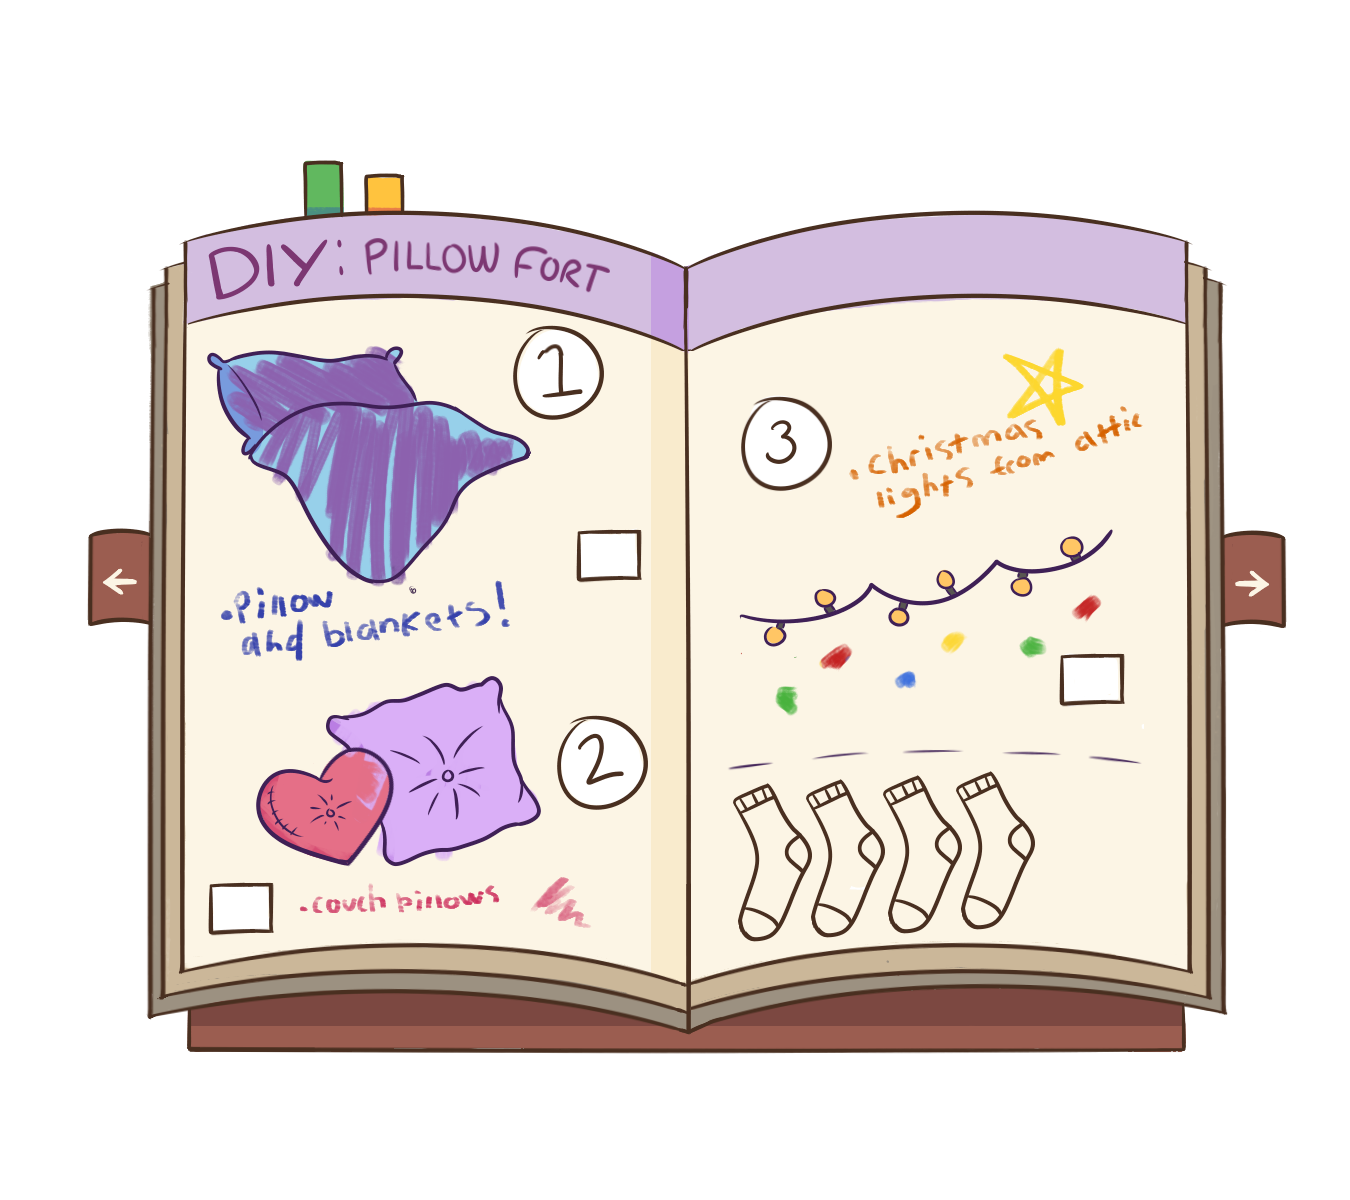 DIY: PILLOW FORT
1
•Pillow
and blankets!
2
•couch pillows
3
•Christmas
lights from attic